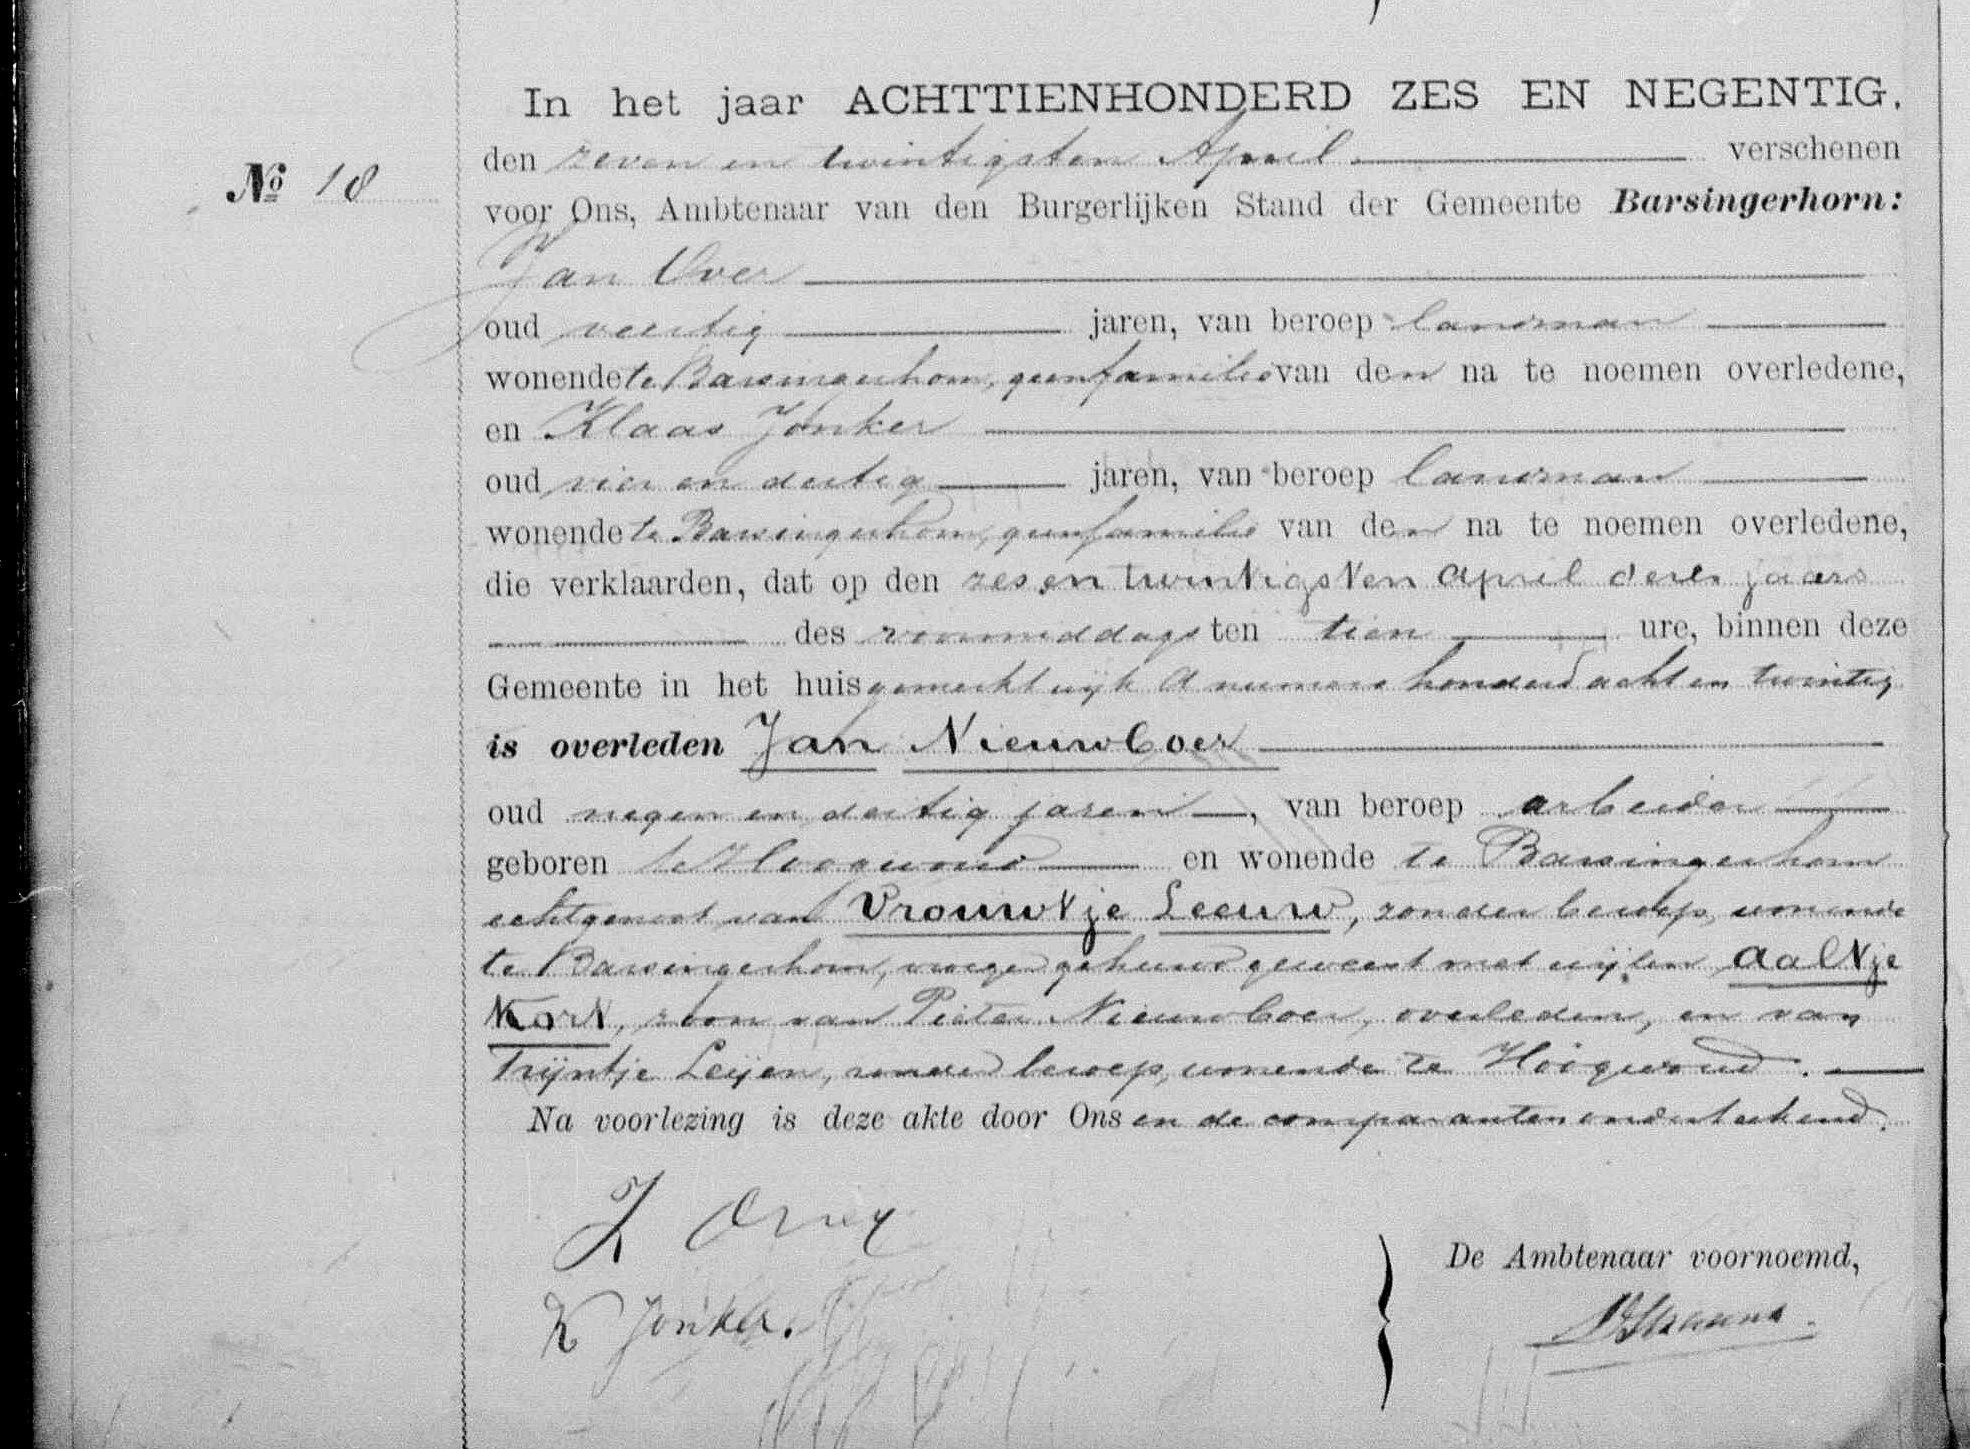 In het jaar ACHTTIENHONDERD ZES EN NEGENTIG,
No 18
den zeven en twintigsten April verschenen
voor Ons, Ambtenaar van den Burgerlijken Stand der Gemeente Barsingerhorn:
Jan Over
oud veertig jaren, van beroep landman
wonende te Barsingerhorn, geen familie van den na te noemen overledene,
en Klaas Jonker
oud vier en dertig jaren, van beroep landman
wonende te Barsingerhorn, geen familie van den na te noemen overledene,
die verklaarden, dat op den zes en twintigsten April dezes jaars
des voormiddags ten tien ure, binnen deze
Gemeente in het huis gemerkt wijk A nummer honderd acht en twintig
is overleden Jan Nieuwboer
oud negen en dertig jaren, van beroep arbeider
geboren te Hoogwoud en wonende te Barsingerhorn
echtgenoot van Vrouwtje Leeuw, zonder beroep, wonende
te Barsingerhorn, vroeger gehuwd geweest met wijlen Aaltje
Kort, zoon van Pieter Nieuwboer, overleden, en van
Trijntje Leijen, zonder beroep, wonende te Hoogwoud.
Na voorlezing is deze akte door Ons en de comparanten onderteekend.
J Over
K Jonker.
De Ambtenaar voornoemd,